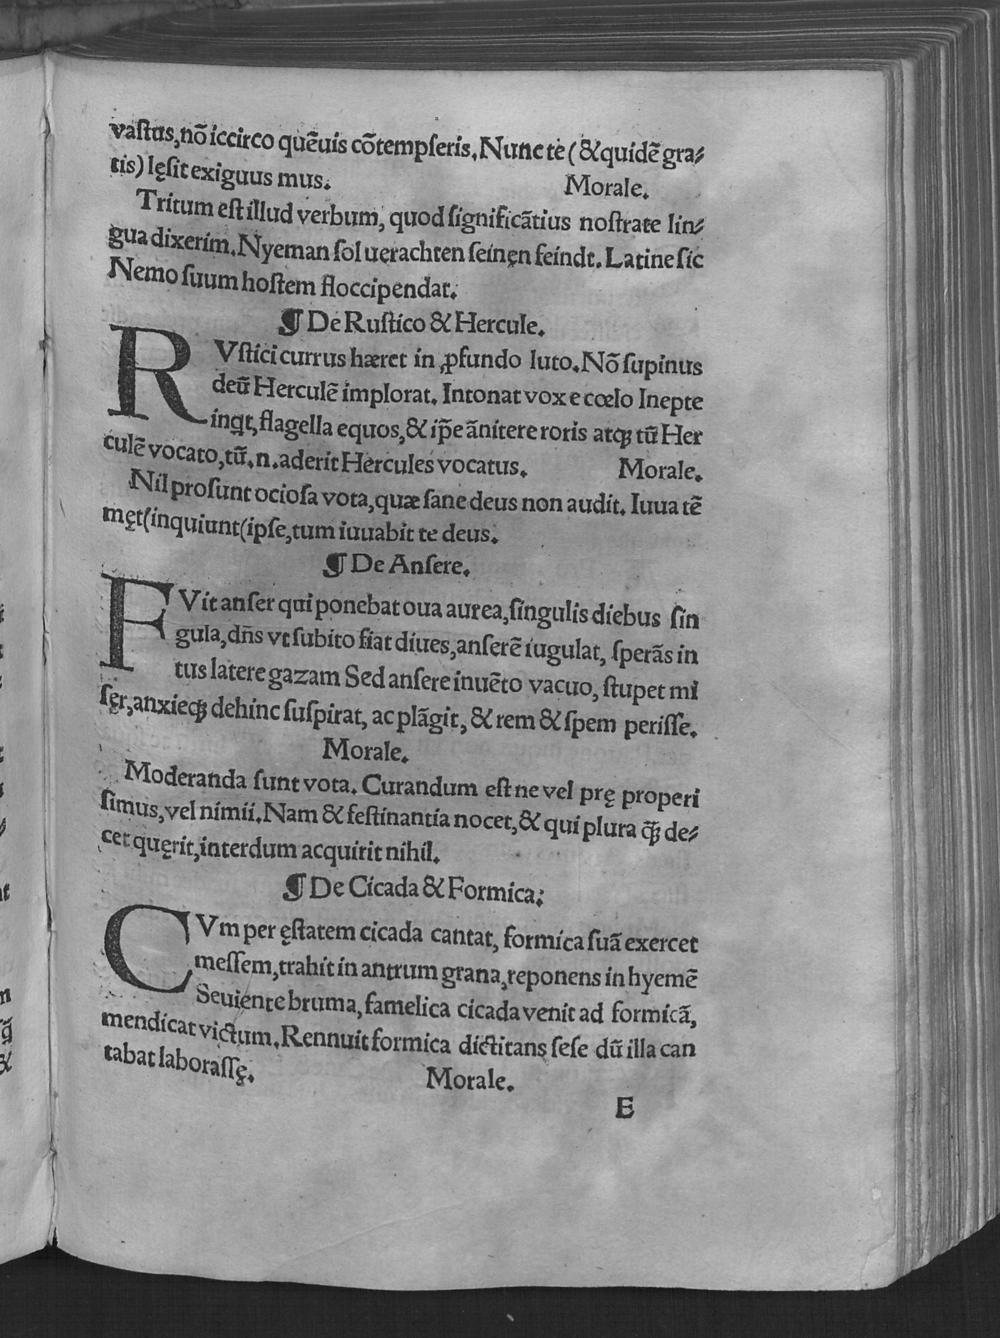 vaſtus,nõ iccirco quẽuis cõtempſeris.Nunc te (&quidẽ gra⸗
tis) lęſit exiguus mus. Morale.
Tritum eſt illud verbum, quod ſignificãtius noſtrate lin⸗
gua dixerim.Nyeman ſol uerachten ſeinęn feindt.Latine ſic
Nemo ſuum hoſtem floccipendat.
¶ De Ruſtico & Hercule.
RVſtici currus hæret in ꝓfundo luto.Nõ ſupinus
deũ Herculẽ implorat. Intonat vox e cœlo Inepte
inꝗt,flagella equos,& ip̃e ãnitere roris atqꝫ tũ Her
culẽ vocato,tũ.n.aderit Hercules vocatus. Morale.
Nil proſunt ocioſa vota,quæ ſane deus non audit. Iuua tẽ
męt(inquiunt(ipſe,tum iuuabit te deus.
¶ De Anſere.
FVit anſer qui ponebat oua aurea,ſingulis diebus ſin
gula,dñs vt ſubito fiat diues,anſerẽ iugulat, ſperãs in
tus latere gazam Sed anſere inuẽto vacuo, ſtupet mi
ſęr,anxieqꝫ dehinc ſuſpirat, ac plãgit, & rem & ſpem periſſe.
Morale.
Moderanda ſunt vota. Curandum eſt ne vel prę properi
ſimus,vel nimii.Nam & feſtinantia nocet,& qui plura q̃ꝫ de⸗
cet quęrit,interdum acquirit nihil.
¶ De Cicada & Formica:
CVm per ęſtatem cicada cantat, formica ſuã exercet
meſſem,trahit in antrum grana,reponens in hyemẽ
Seuiente bruma,famelica cicada venit ad formicã,
mendicat victum.Rennuit formica dictitans ſeſe dũ illa can
tabat laboraſſę. Morale.
E